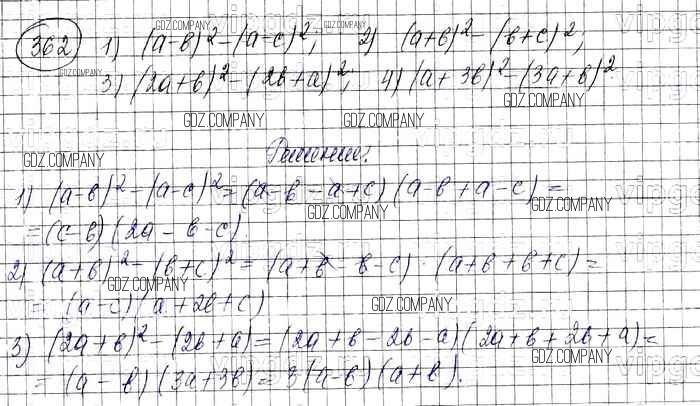 362 1) (a-в)²-(a-c)²; 2) (a+в)²-(в+c)²;
3) (2a+в)²-(2в+a)²; 4) (a+3в)²-(3a+в)²
Решение:
1) (a-в)²-(a-c)²=(a-в-a+c)(a-в+a-c)=
=(c-в)(2a-в-c)
2) (a+в)²-(в+c)²=(a+в-в-c)·(a+в+в+c)=
=(a-c)(a+2в+c)
3) (2a+в)²-(2в+a)=(2a+в-2в-a)(2a+в+2в+a)=
=(a-в)(3a+3в)=3(a-в)(a+в).
GDZ.COMPANY
GDZ.COMPANY
GDZ.COMPANY
GDZ.COMPANY
GDZ.COMPANY
GDZ.COMPANY
GDZ.COMPANY
GDZ.COMPANY
GDZ.COMPANY
GDZ.COMPANY
GDZ.COMPANY
GDZ.COMPANY